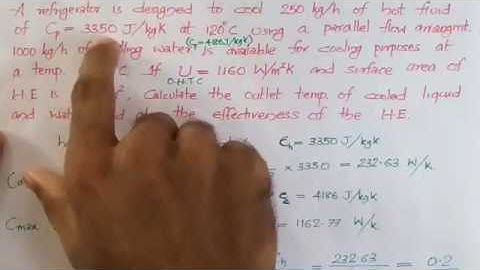 A refrigerator is designed to cool 250 kg/h of hot fluid
of Cp = 3350 J/kgK at 120°C using a parallel flow arrangmt.
1000 kg/h of cooling water is available for cooling purposes at
(Cp=4186J/kgK)
a temp. °C. If U = 1160 W/m²K and surface area of
O.H.T.C
H.E is m², Calculate the outlet temp. of cooled liquid
and the effectiveness of the H.E.
Ch = 3350 J/kgK
× 3350 = 232.63 W/K
= 4186 J/kgK
Cmax = 1162.77 W/K
232.63 = 0.2